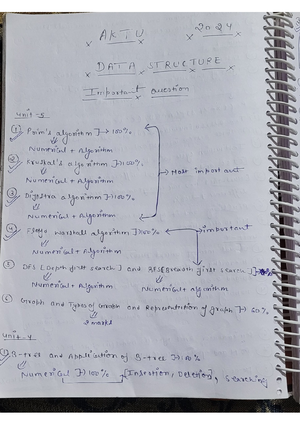 AKTU 2024
DATA STRUCTURE
Important Question
Unit-5
① Prim's algorithm ]→ 100%
Numerical + Algorithm
② Kruskal's algorithm ]→ 100%
Numerical + Algorithm
→ Most important
③ Dijestra algorithm ]→ 100%
Numerical + Algorithm
④ Warshall algorithm ]→ 100% → important
Numerical + Algorithm
⑤ DFS [Depth first search] and BFS [Breadth first search]
Numerical + Algorithm Numerical + algorithm
⑥ Graph and Types of Graph and Representation of graph ]→ 60%
2 marks
Unit-4
① B-tree and Application of B-tree ]→ 100%
Numerical ]→ 100% [Insertion, Deletion], Searching